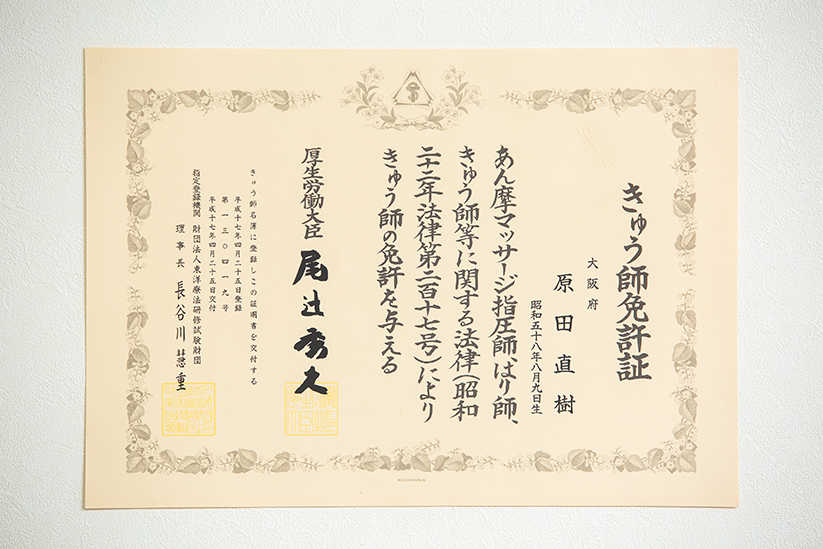 きゅう師免許証
大阪府
原田直樹
昭和五十八年八月九日生
あん摩マッサージ指圧師、はり師、
きゅう師等に関する法律(昭和
二十二年法律第二百十七号)により
きゅう師の免許を与える
厚生労働大臣 尾辻秀久
きゅう師名簿に登録しこの証明書を交付する
平成十七年四月二十五日登録
第一三〇四一九号
平成十七年四月二十五日交付
指定登録機関 財団法人東洋療法研修試験財団
理事長 長谷川慧重